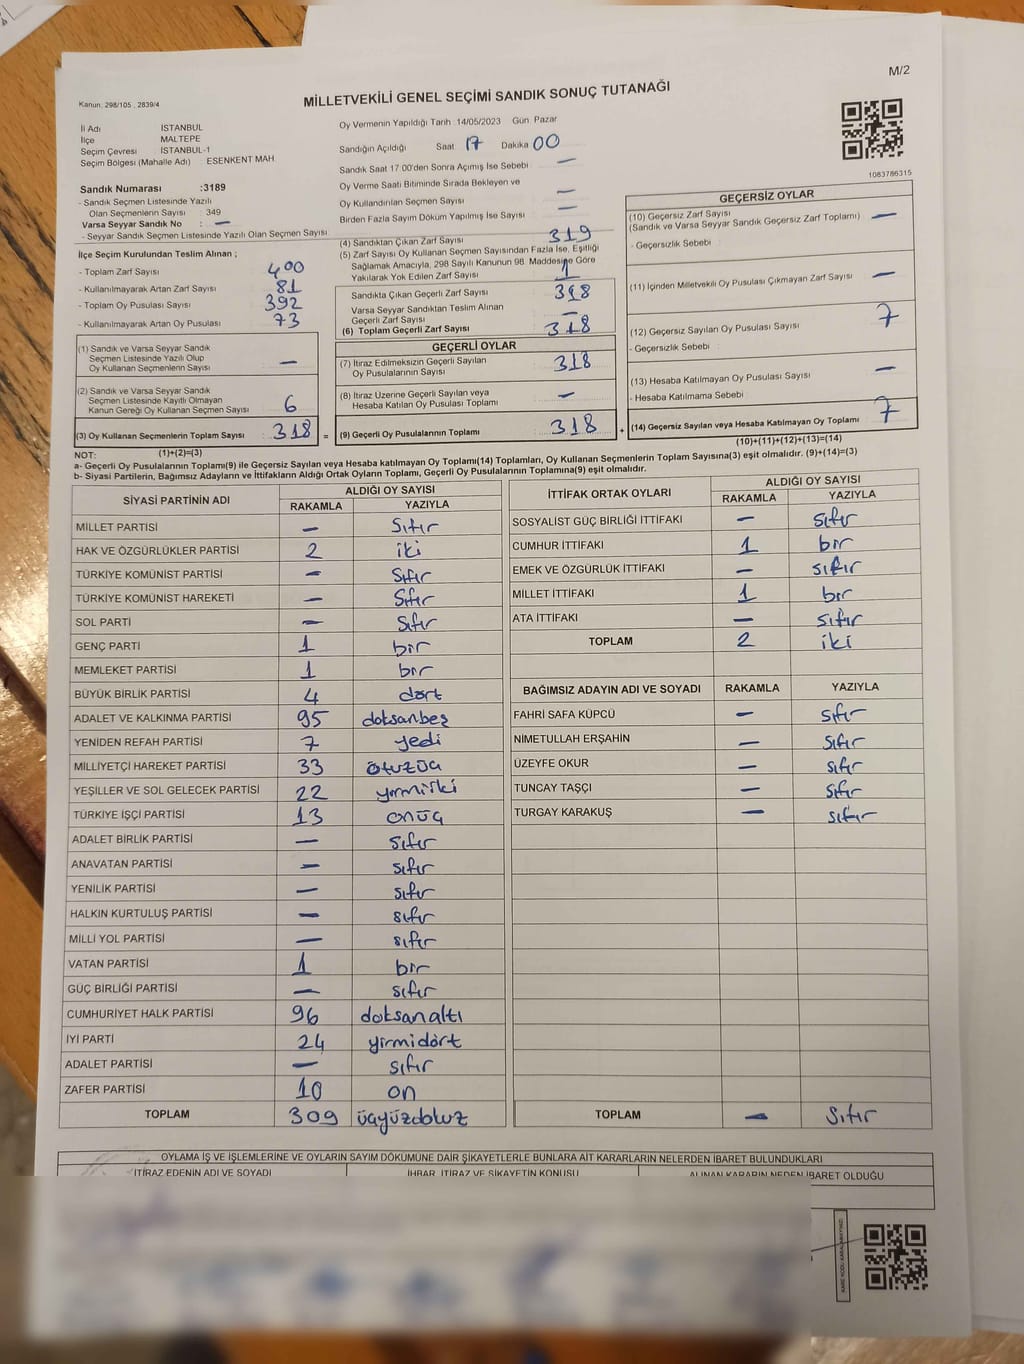 M/2
Kanun. 298/105 , 2839/4
MİLLETVEKİLİ GENEL SEÇİMİ SANDIK SONUÇ TUTANAĞI
İl Adı İSTANBUL
İlçe MALTEPE
Seçim Çevresi İSTANBUL-1
Seçim Bölgesi (Mahalle Adı) : ESENKENT MAH.
Oy Vermenin Yapıldığı Tarih :14/05/2023 Gün Pazar
Sandığın Açıldığı Saat 17 Dakika 00
Sandık Saat 17:00'den Sonra Açımış İse Sebebi : —
Oy Verme Saati Bitiminde Sırada Bekleyen ve
Oy Kullandırılan Seçmen Sayısı : —
Birden Fazla Sayım Döküm Yapılmış İse Sayısı : —
1083786315
Sandık Numarası :3189
- Sandık Seçmen Listesinde Yazılı
Olan Seçmenlerin Sayısı : 349
Varsa Seyyar Sandık No : —
- Seyyar Sandık Seçmen Listesinde Yazılı Olan Seçmen Sayısı
İlçe Seçim Kurulundan Teslim Alınan ;
- Toplam Zarf Sayısı : 400
- Kullanılmayarak Artan Zarf Sayısı : 81
- Toplam Oy Pusulası Sayısı : 392
- Kullanılmayarak Artan Oy Pusulası : 73
(1) Sandık ve Varsa Seyyar Sandık
Seçmen Listesinde Yazılı Olup
Oy Kullanan Seçmenlerin Sayısı : —
(2) Sandık ve Varsa Seyyar Sandık
Seçmen Listesinde Kayıtlı Olmayan
Kanun Gereği Oy Kullanan Seçmen Sayısı : 6
(3) Oy Kullanan Seçmenlerin Toplam Sayısı : 318 =
(4) Sandıktan Çıkan Zarf Sayısı : 319
(5) Zarf Sayısı Oy Kullanan Seçmen Sayısından Fazla İse, Eşitliği
Sağlamak Amacıyla, 298 Sayılı Kanunun 98. Maddesine Göre
Yakılarak Yok Edilen Zarf Sayısı : 1
Sandıkta Çıkan Geçerli Zarf Sayısı : 318
Varsa Seyyar Sandıktan Teslim Alınan
Geçerli Zarf Sayısı : —
(6) Toplam Geçerli Zarf Sayısı : 318
GEÇERLİ OYLAR
(7) İtiraz Edilmeksizin Geçerli Sayılan
Oy Pusulalarının Sayısı : 318
(8) İtiraz Üzerine Geçerli Sayılan veya
Hesaba Katılan Oy Pusulası Toplamı : —
(9) Geçerli Oy Pusulalarının Toplamı : 318 +
GEÇERSİZ OYLAR
(10) Geçersiz Zarf Sayısı : —
(Sandık ve Varsa Seyyar Sandık Geçersiz Zarf Toplamı)
- Geçersizlik Sebebi :
(11) İçinden Milletvekili Oy Pusulası Çıkmayan Zarf Sayısı : —
(12) Geçersiz Sayılan Oy Pusulası Sayısı : 7
- Geçersizlik Sebebi :
(13) Hesaba Katılmayan Oy Pusulası Sayısı : —
- Hesaba Katılmama Sebebi :
(14) Geçersiz Sayılan veya Hesaba Katılmayan Oy Toplamı : 7
NOT: (1)+(2)=(3)
(10)+(11)+(12)+(13)=(14)
a- Geçerli Oy Pusulalarının Toplamı(9) ile Geçersiz Sayılan veya Hesaba katılmayan Oy Toplamı(14) Toplamları, Oy Kullanan Seçmenlerin Toplam Sayısına(3) eşit olmalıdır. (9)+(14)=(3)
b- Siyasi Partilerin, Bağımsız Adayların ve İttifakların Aldığı Ortak Oyların Toplamı, Geçerli Oy Pusulalarının Toplamına(9) eşit olmalıdır.
SİYASİ PARTİNİN ADI ALDIĞI OY SAYISI
RAKAMLA YAZIYLA
MİLLET PARTİSİ — Sıfır
HAK VE ÖZGÜRLÜKLER PARTİSİ 2 iki
TÜRKİYE KOMÜNİST PARTİSİ — Sıfır
TÜRKİYE KOMÜNİST HAREKETİ — Sıfır
SOL PARTİ — Sıfır
GENÇ PARTİ 1 bir
MEMLEKET PARTİSİ 1 bir
BÜYÜK BİRLİK PARTİSİ 4 dört
ADALET VE KALKINMA PARTİSİ 95 doksanbeş
YENİDEN REFAH PARTİSİ 7 yedi
MİLLİYETÇİ HAREKET PARTİSİ 33 otuzüç
YEŞİLLER VE SOL GELECEK PARTİSİ 22 yirmiiki
TÜRKİYE İŞÇİ PARTİSİ 13 onüç
ADALET BİRLİK PARTİSİ — sıfır
ANAVATAN PARTİSİ — sıfır
YENİLİK PARTİSİ — sıfır
HALKIN KURTULUŞ PARTİSİ — sıfır
MİLLİ YOL PARTİSİ — sıfır
VATAN PARTİSİ 1 bir
GÜÇ BİRLİĞİ PARTİSİ — sıfır
CUMHURİYET HALK PARTİSİ 96 doksanaltı
İYİ PARTİ 24 yirmidört
ADALET PARTİSİ — sıfır
ZAFER PARTİSİ 10 on
TOPLAM 309 üçyüzdokuz
İTTİFAK ORTAK OYLARI ALDIĞI OY SAYISI
RAKAMLA YAZIYLA
SOSYALİST GÜÇ BİRLİĞİ İTTİFAKI — sıfır
CUMHUR İTTİFAKI 1 bir
EMEK VE ÖZGÜRLÜK İTTİFAKI — sıfır
MİLLET İTTİFAKI 1 bir
ATA İTTİFAKI — sıfır
TOPLAM 2 iki
BAĞIMSIZ ADAYIN ADI VE SOYADI RAKAMLA YAZIYLA
FAHRİ SAFA KÜPCÜ — sıfır
NİMETULLAH ERŞAHİN — sıfır
ÜZEYFE OKUR — sıfır
TUNCAY TAŞÇI — sıfır
TURGAY KARAKUŞ — sıfır
TOPLAM — Sıfır
OYLAMA İŞ VE İŞLEMLERİNE VE OYLARIN SAYIM DÖKÜMÜNE DAİR ŞİKAYETLERLE BUNLARA AİT KARARLARIN NELERDEN İBARET BULUNDUKLARI
İTİRAZ EDENİN ADI VE SOYADI İHBAR, İTİRAZ VE ŞİKAYETİN KONUSU ALINAN KARARIN NEDEN İBARET OLDUĞU